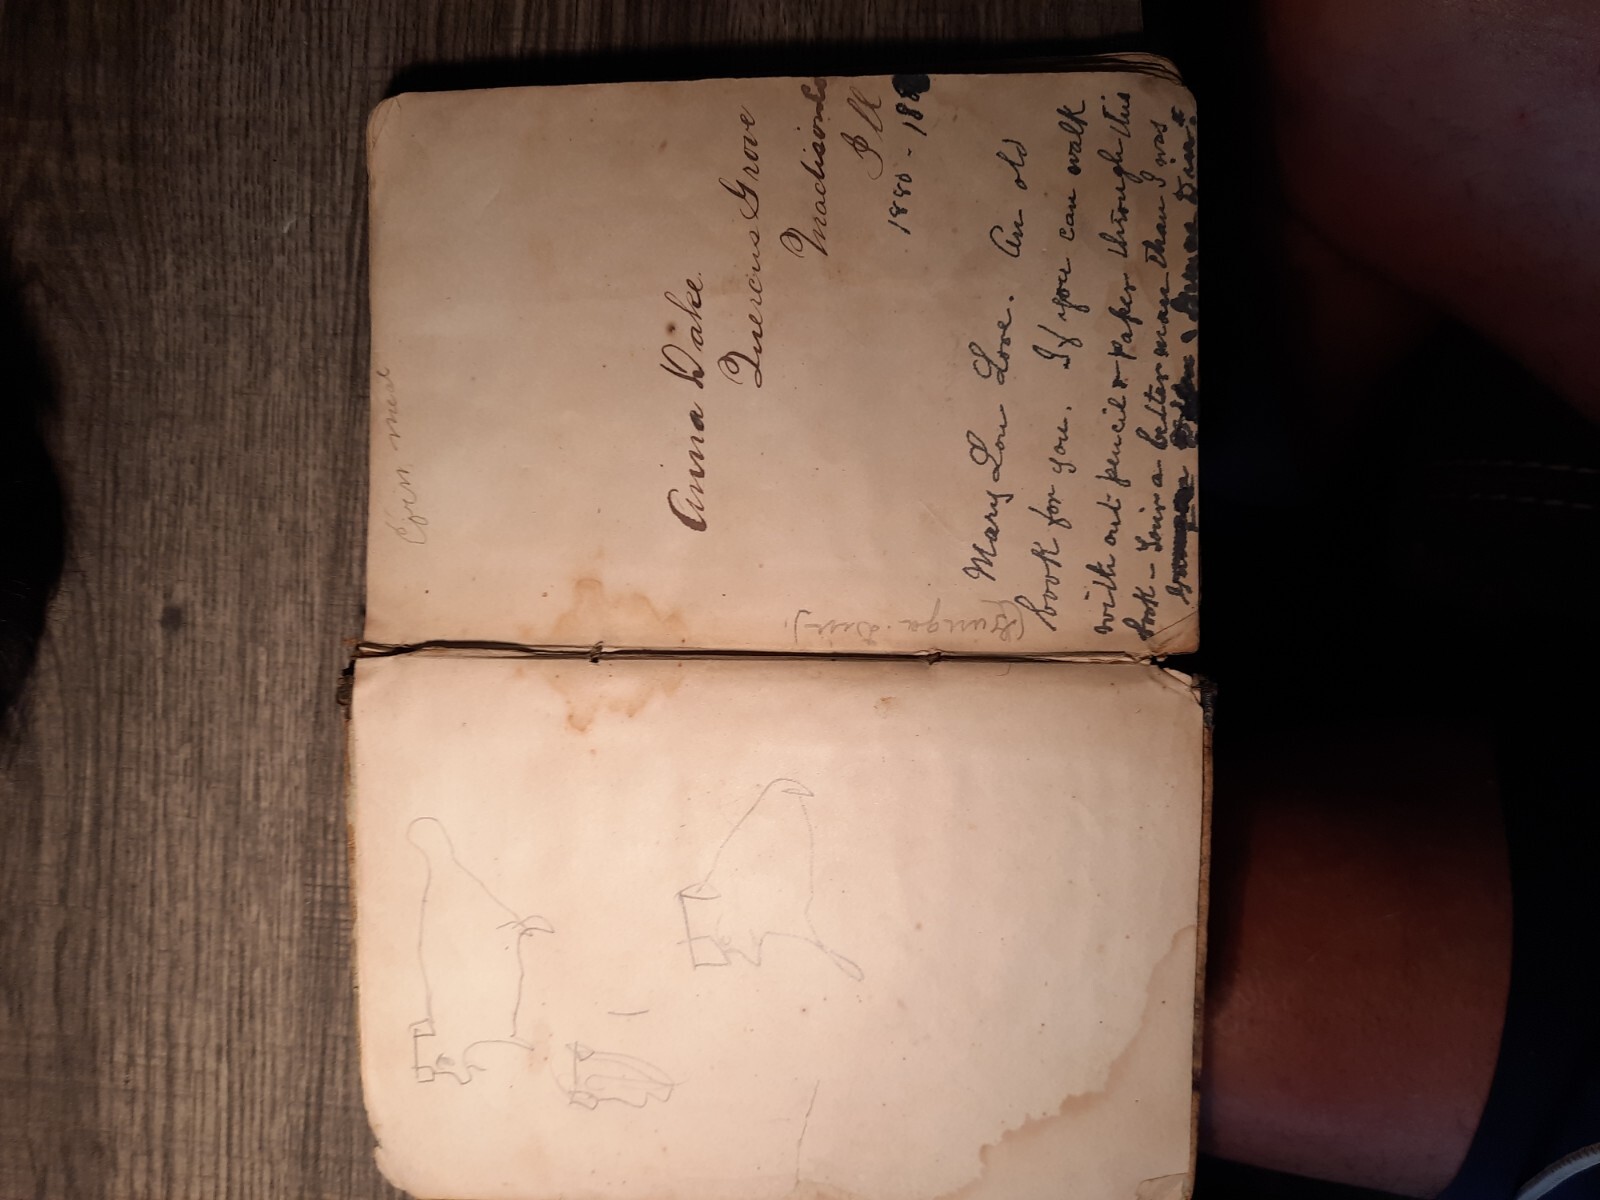 Anna Wake
Quercus Grove
Madison Co
Ill
1880 - 188
Mary Lou Love. An old
book for you. If you can walk
with out pencil & paper through this
book - Your a better man than I was